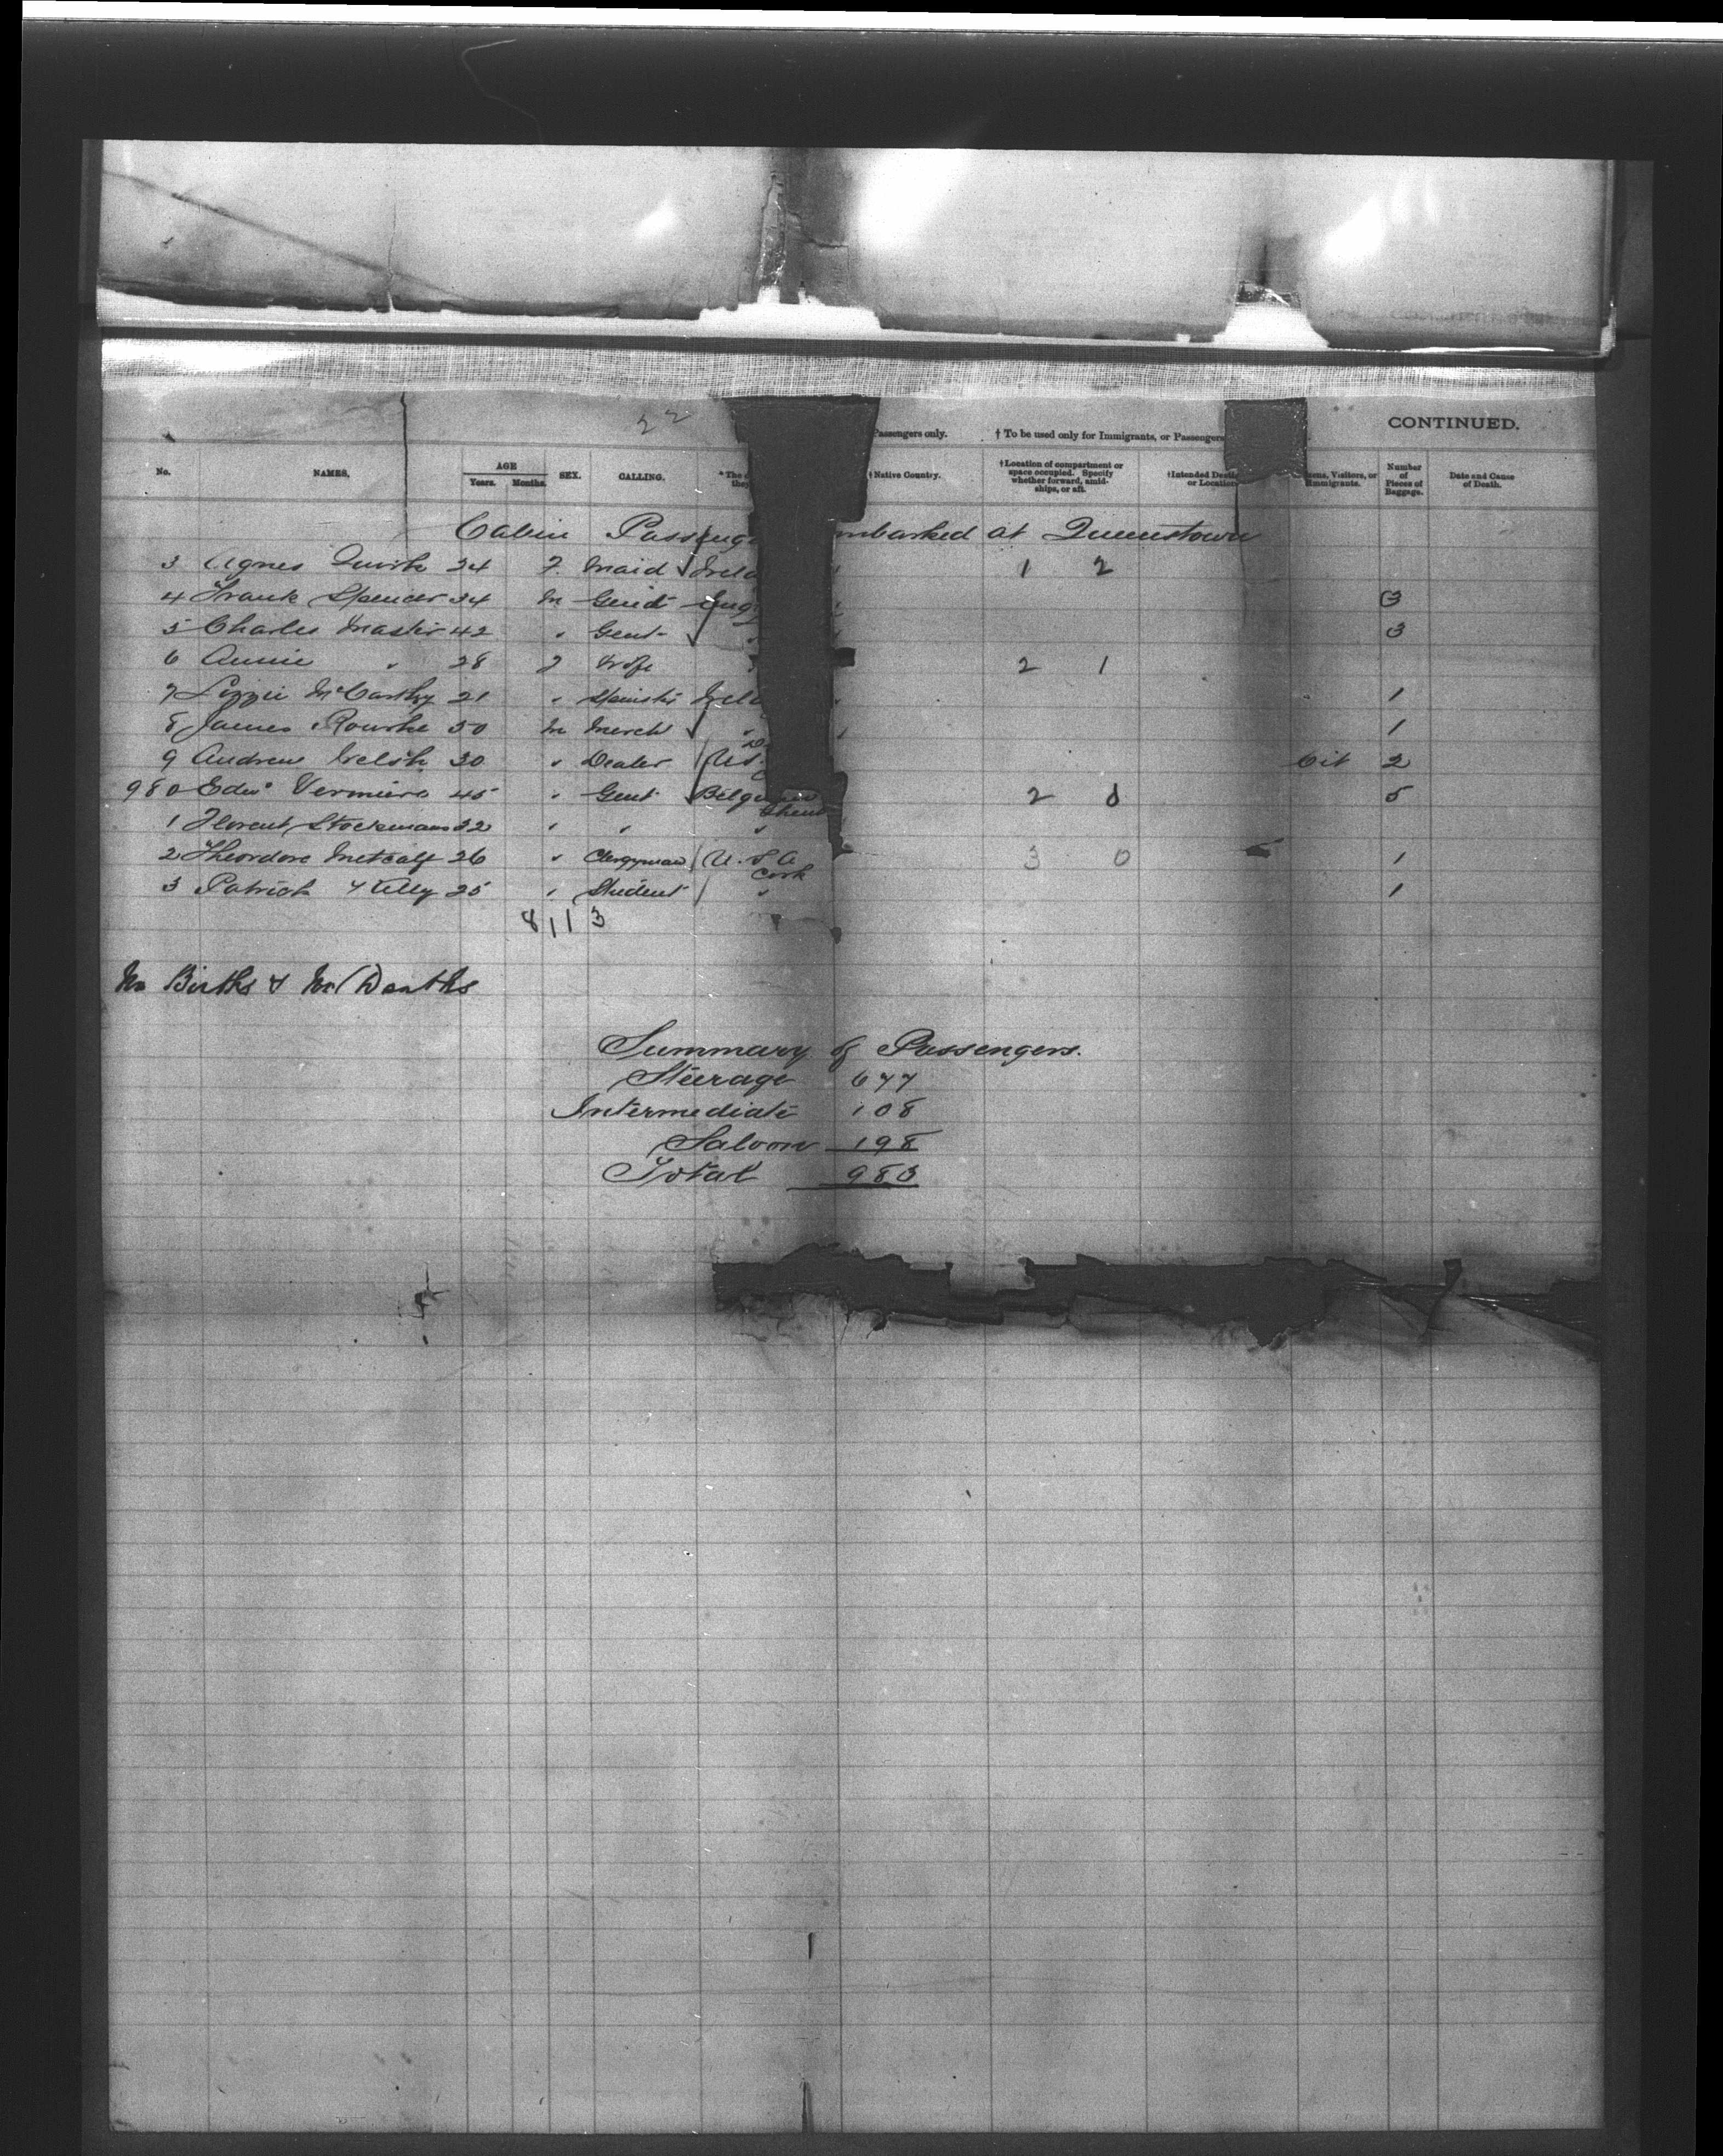 22
CONTINUED.
Passengers only. † To be used only for Immigrants, or Passengers
No. NAMES. AGE Years. Months. SEX. CALLING. *The they † Native Country. †Location of compartment or space occupied. Specify whether forward, amid-ships, or aft. †Intended or Location Visitors, or Immigrants. Number of Pieces of Baggage. Date and Cause of Death.
Cabin Passenge mbarked at Queenstown
3 Agnes Quirk 24 F. Maid Irela 1 2
4 Frank Spencer 34 M Gent Eng 3
5 Charles Master 42 " Gent " 3
6 Annie " 28 F Wife 2 1
7 Lizzie McCarthy 21 " Spinster Irela 1
8 James Rourke 50 M Merch " 1
9 Andrew Welsh 30 " Dealer U.S. Cit 2
980 Edwd Vermeire 45 " Gent Belgium 2 0 5
Ghent
1 Florent Stockmans 32 " " "
2 Theordore Metcalf 26 " Clergyman U. S. A 3 0 1
Cork
3 Patrick Kelly 25 " Student " 1
8 11 3
No Births & No Deaths
Summary of Passengers.
Steerage 677
Intermediate 108
Saloon 198
Total 983